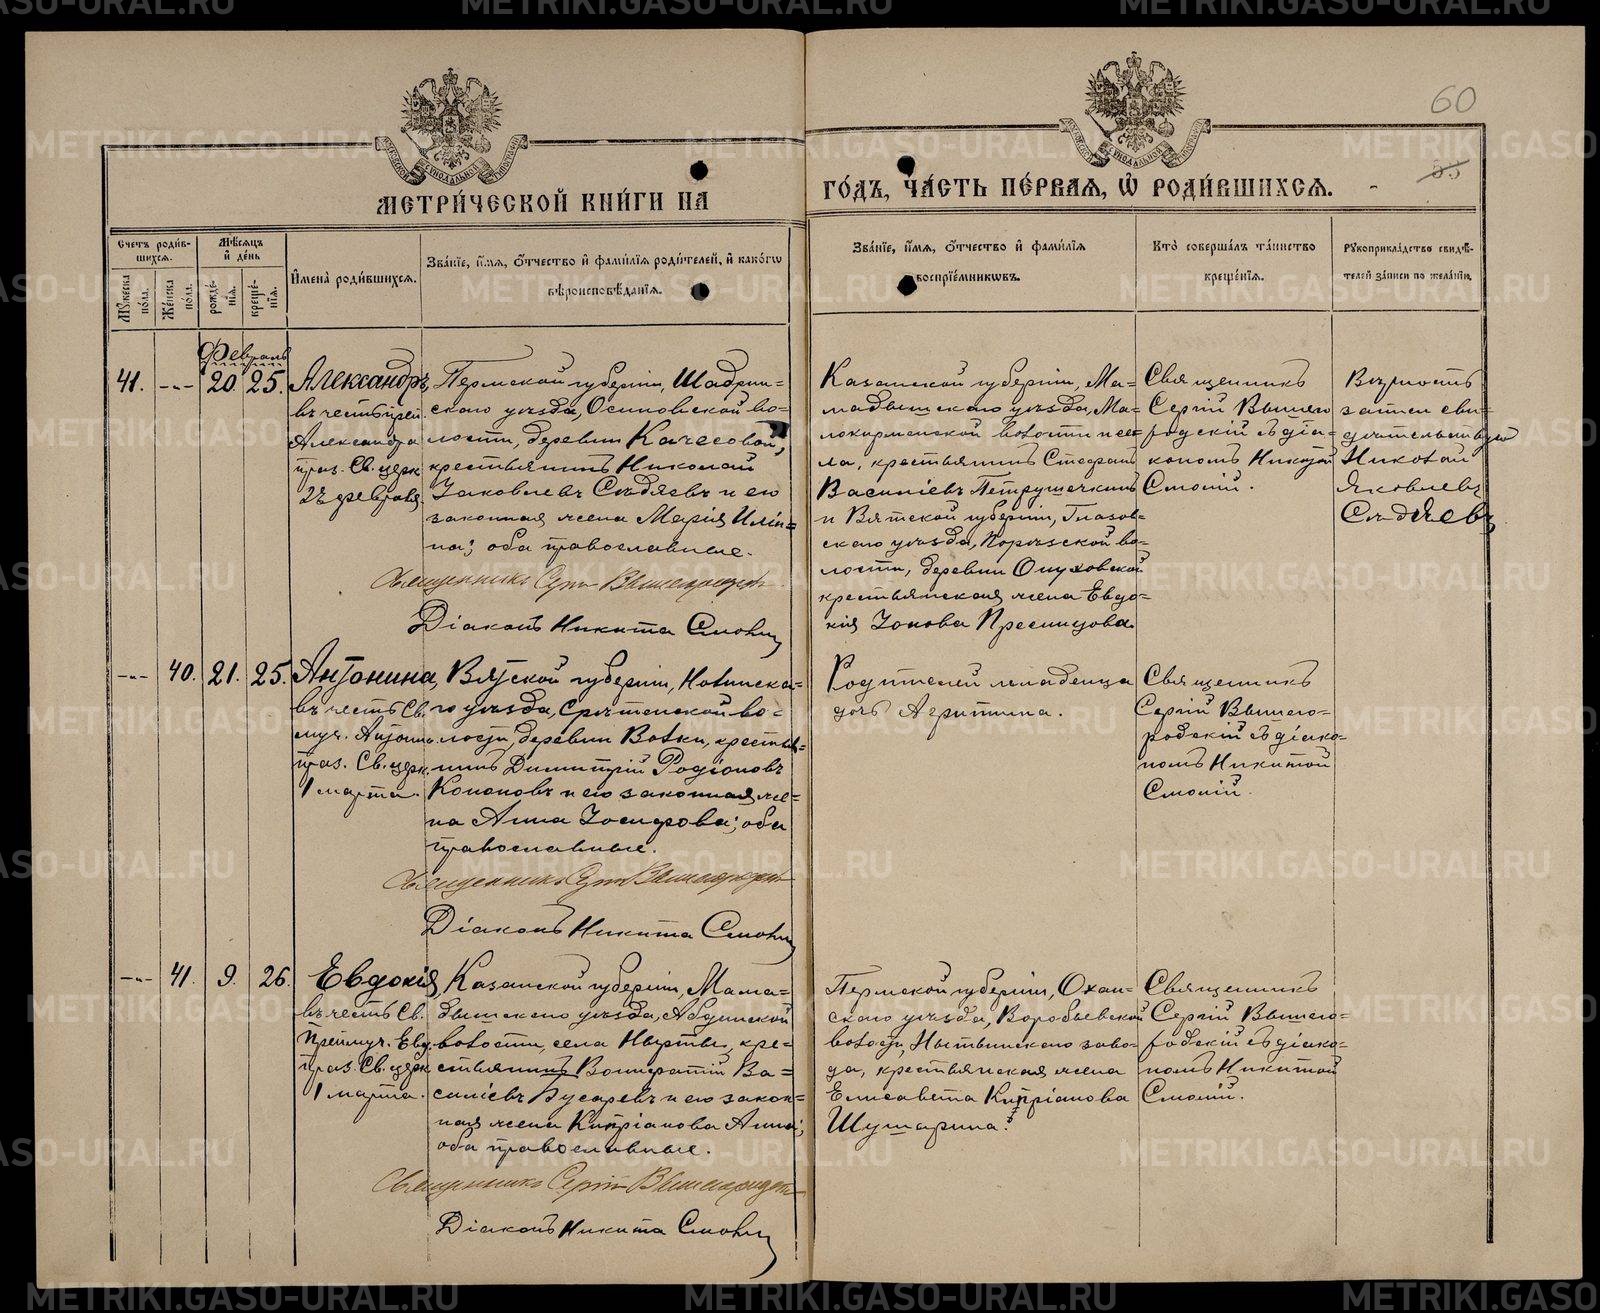 60
МЕТРИ́ЧЕСКОЙ КНИ́ГИ НА
ГО́ДЪ, ЧА́СТЬ ПЕ́РВАЯ, Ѡ РОДИ́ВШИХСЯ.
Счетъ роди́в-
шихся.
Мѣ́сяцъ
и̂ де́нь
Мꙋжеска
по́ла.
Же́нска
по́ла.
рожде́-
нїя.
креще́-
нїя.
И̂мена̀ роди́вшихся.
Зва́нїе, и̂́мя, ѻ҆́тчество и̂ фами́лїя роди́телей, и̂ како́гѡ
вѣроисповѣ́данїя.
Зва́нїе, и̂́мя, ѻ҆́тчество и̂ фами́лїя
воспрїе́мниковъ.
Кто̀ соверша́лъ та́инство
креще́нїя.
Рꙋкоприкла́дство свидѣ́-
телей за́писи по жела́нїю.
Февраль
41. -"- 20. 25.
Александръ,
въ честь преп.
Александра
праз. Св. церк
23 февраля.
Пермской губерніи, Шадрин-
скаго уѣзда, Осиновской во-
лости, деревни Качесовой,
крестьянинъ Николай
Іаковлевъ Съѣдяевъ и его
законная жена Марія Иліи-
на; оба православные.
Священникъ Сергій Вышегородскій
Діаконъ Никита Смолинъ
Казанской губерніи, Ма-
мадышскаго уѣзда, Ма-
локирменской волости и се-
ла, крестьянинъ Стефанъ
Василіевъ Петрушечкинъ
и Вятской губерніи, Глазов-
скаго уѣзда, Порѣзской во-
лости, деревни Опуховской
крестьянская жена Евдо-
кія Іонова Преснецова.
Священникъ
Сергій Вышего
родскій съ діа-
кономъ Никитой
Смолин.
Вѣрность
записи сви-
дѣтельствую
Николай
Яковлевъ
-"- 40. 21. 25.
Антонина,
въ честь Св.
муч. Антонин.
праз. Св. церк.
1 марта.
Вятской губерніи, Нолинска-
го уѣзда, Срѣтенской во-
лости, деревни Волки, крестья-
нинъ Димитрій Родіоновъ
Кононовъ и его законная же-
на Анна Іосифова; оба
православные.
Священникъ Сергій Вышегородскій
Діаконъ Никита Смолинъ
Родителей младенца
дочь Агрипина.
Священникъ
Сергій Вышего-
родскій съ діако-
номъ Никитой
Смолин.
-"- 41. 9. 26.
Евдокія
въ честь Св.
Преп.муч. Евд.
праз. Св. церк
1 марта.
Казанской губерніи, Мама-
дышскаго уѣзда, Абдинской
волости, села Нырты, кре-
стьянинъ Вонифатій Ва-
силіевъ Гусаревъ и его закон-
ная жена Кипріанова Анна;
оба православные.
Священникъ Сергій Вышегородскій
Діаконъ Никита Смолинъ
Пермской губерніи, Охан-
скаго уѣзда, Воробьевской
волости, Нытвинскаго заво-
да, крестьянская жена
Елисавета Кипріанова
Шушарина.
Священникъ
Сергій Вышего-
родскій съ діако-
номъ Никитой
Смолин.
METRIKI.GASO-URAL.RU